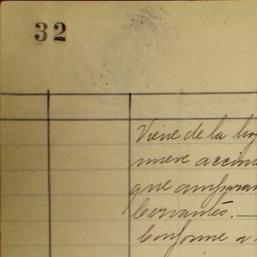 32
Viene de la hoj
nueve accion
que amparan
Cervantes. —
Conforme a